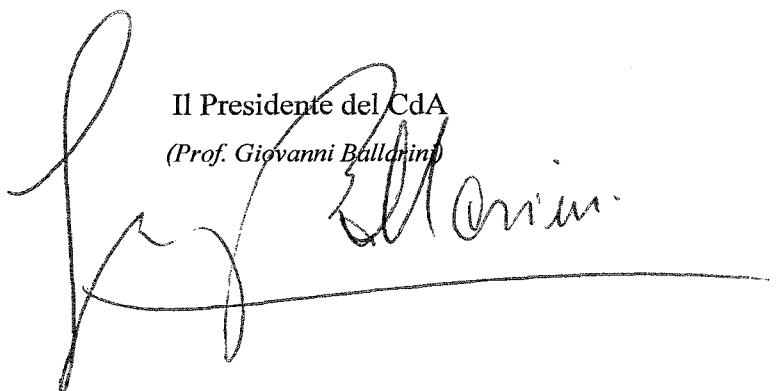 Il Presidente del CdA
(Prof. Giovanni Ballarini)
Ballarini